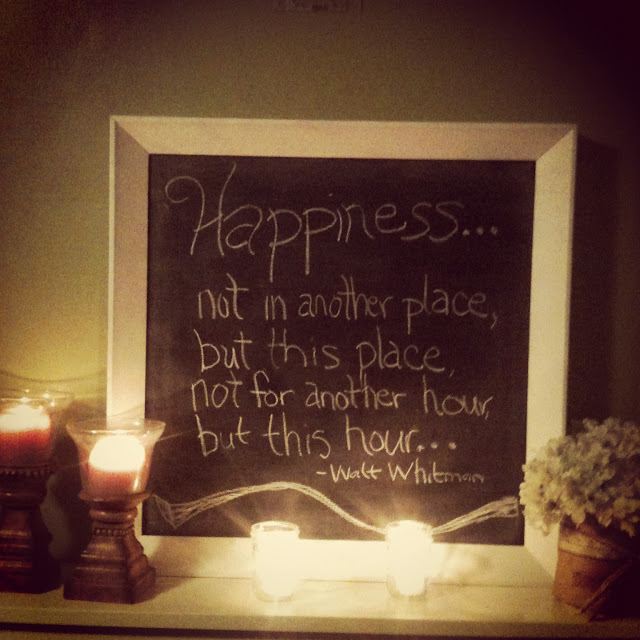 Happiness...
not in another place,
but this place,
not for another hour,
but this hour...
-Walt Whitman